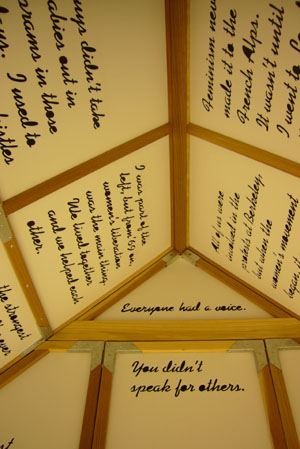 uys didn't take
abies out in
prams in those
ays. I used to
bristles
Feminism new
made it to the
French Alps.
It wasn't until
I went to
I was part of the
left, but from '69 on,
women's liberation
was the main thing.
We lived together
and we helped each
other.
All of us were
involved in the
protests at Berkeley,
but when the
women's movement
began
the strongest
ever.
Everyone had a voice.
You didn't
speak for others.